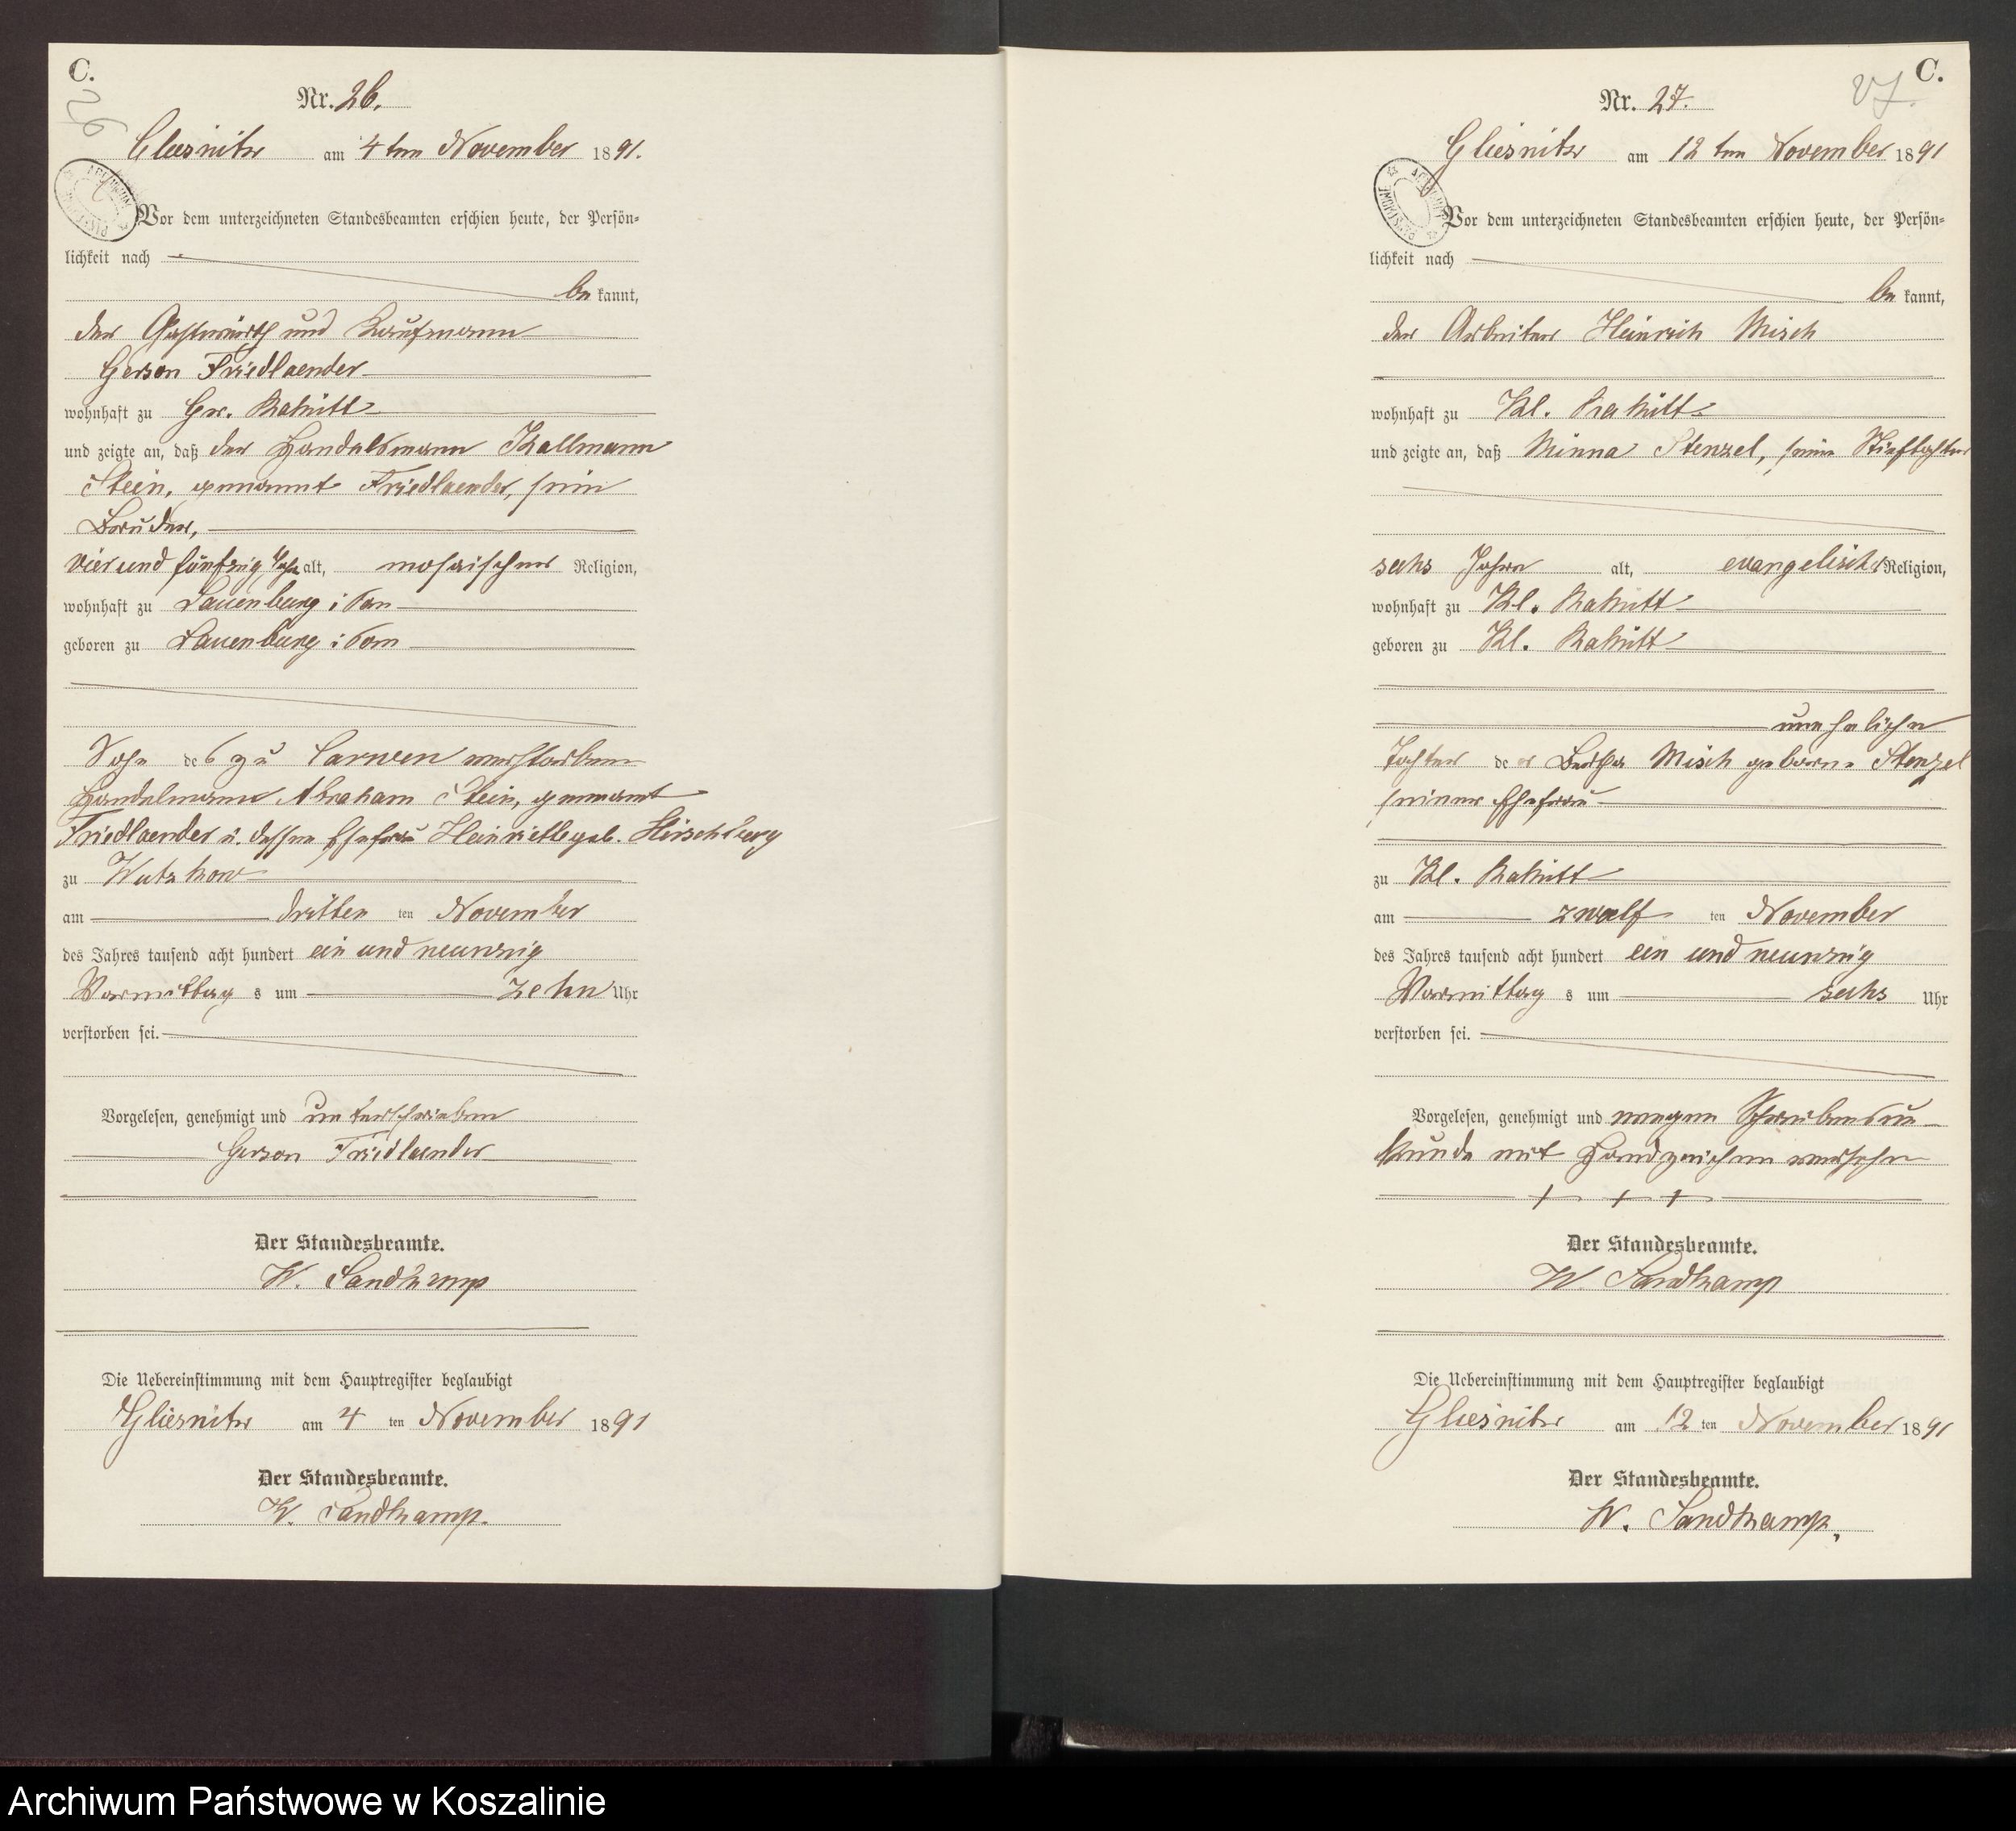 C.
26
Nr. 26.
Gliesnitz am 4ten November 1891.
Vor dem unterzeichneten Standesbeamten erschien heute, der Persön-
lichkeit nach
be kannt,
der Gastwirth und Kaufmann
Gerson Friedlaender
wohnhaft zu Gr. Rakitt
und zeigte an, daß der Handelsmann Kallmann
Stein, genannt Friedlaender, sein
Bruder,
vier und fünfzig Jahr alt, mosaischer Religion,
wohnhaft zu Lauenburg i Pom
geboren zu Lauenburg i Pom
Sohn des zu Carwen verstorbenen
Handelmann Abraham Stein, genannt
Friedlaender u. dessen Ehefrau Heinriette geb. Hirschberg
zu Wutzkow
am dritten ten November
des Jahres tausend acht hundert ein und neunzig
Vormittag s um zehn Uhr
verstorben sei.
Vorgelesen, genehmigt und unterschrieben
Gerson Friedlaender
Der Standesbeamte.
W. Sandkamp
Die Uebereinstimmung mit dem Hauptregister beglaubigt
Gliesnitz am 4 ten November 1891
Der Standesbeamte.
W. Sandkamp.
C.
27.
Nr. 27.
Gliesnitz am 12 ten November 1891
Vor dem unterzeichneten Standesbeamten erschien heute, der Persön-
lichkeit nach
be kannt,
der Arbeiter Heinrich Misch
wohnhaft zu Kl. Rakitt
und zeigte an, daß Minna Stenzel, seine Stieftochter
sechs Jahre alt, evangelischer Religion,
wohnhaft zu Kl. Rakitt
geboren zu Kl. Rakitt
uneheliche
Tochter der Bertha Misch geborne Stenzel
seiner Ehefrau
zu Kl. Rakitt
am zwölf ten November
des Jahres tausend acht hundert ein und neunzig
Vormittag s um sechs Uhr
verstorben sei.
Vorgelesen, genehmigt und wegen Schreibensun-
kunde mit Handzeichen versehen
+ + +
Der Standesbeamte.
W. Sandkamp
Die Uebereinstimmung mit dem Hauptregister beglaubigt
Gliesnitz am 12 ten November 1891
Der Standesbeamte.
W. Sandkamp.
Archiwum Państwowe w Koszalinie